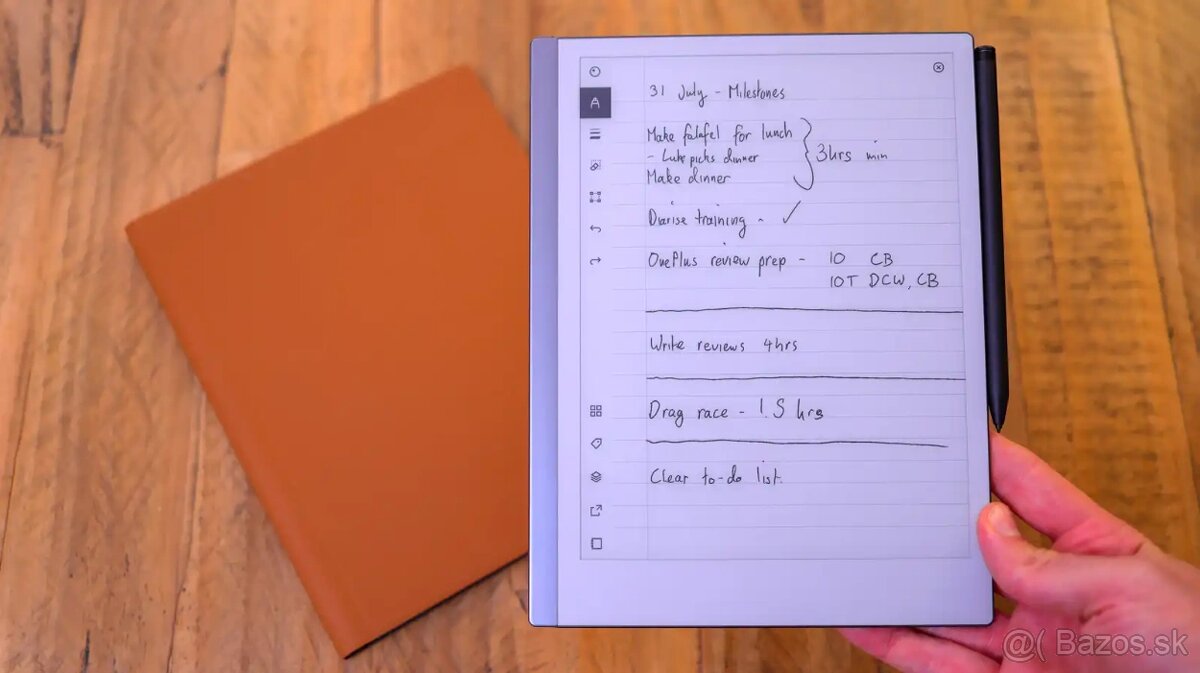 31 July - Milestones
Make falafel for lunch
- Luke picks dinner
Make dinner
3hrs min
Diarise training - ✓
OnePlus review prep - 10 CB
10T DCW, CB
Write reviews 4hrs
Drag race - 1.5 hrs
Clear to-do list.
@( Bazos.sk